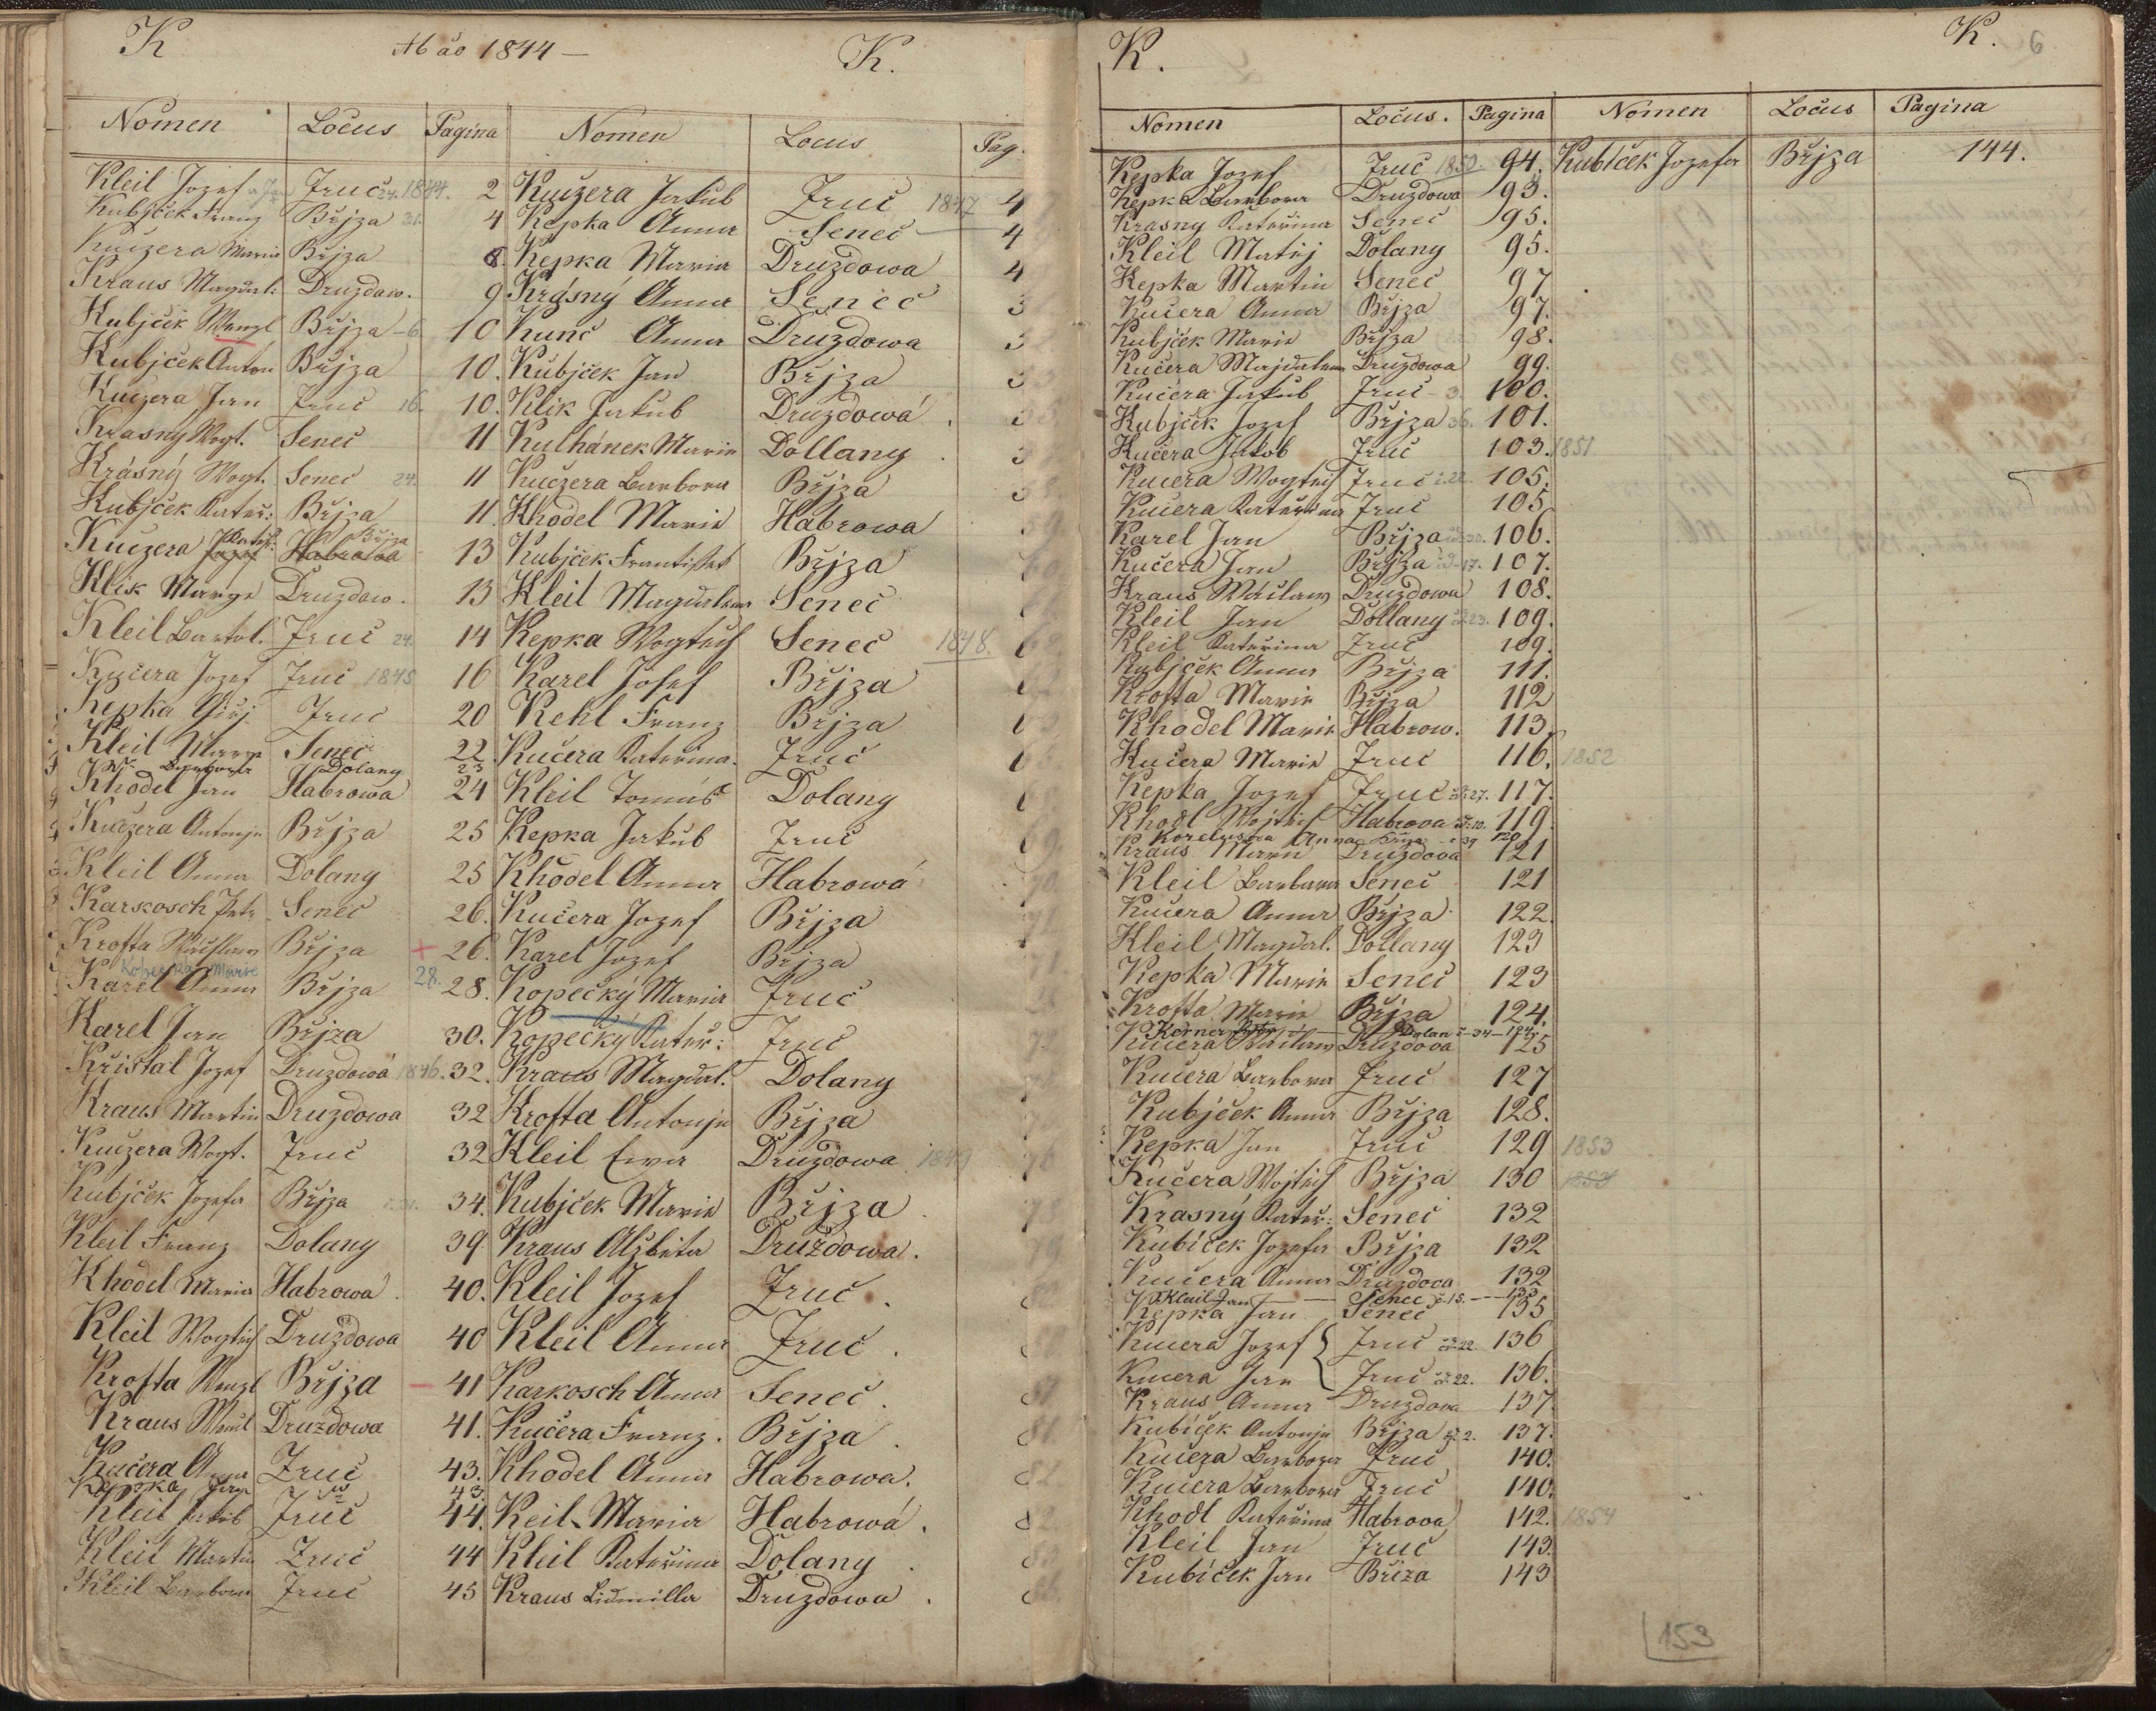 K Ab ao 1844 — K.
Nomen Locus Pagina Nomen Locus Pag.
Kleil Jozef Zruč 24. 1844. 2
Kubjček Franz Břjza 31. 4
Kuczera Marie Břjza 8.
Kraus Magdal: Druzdow. 9
Kubjček Wenzl Břjza - 6 10
Kubjček Anton Břjza 10.
Kuczera Jan Zruč 16. 10.
Krasny Wogt. Seneč 11
Krásný Wogt. Seneč 24. 11
Kubjček Kateř: Břjza 11.
Kuczera Jozef Kateř: Habrowa Břjza 13
Klik Marye Druzdow. 13
Kleil Bartol. Zruč 24. 14
Kučera Jozef Zruč 1845 16
Kepka Giřj Zruč 20
Kleil Marye Seneč 22.
Kr. Barbora Dolany 23
Khodel Jan Habrowa 24
Kuczera Antonje Břjza 25
Kleil Anna Dolany 25
Karkosch Petr Seneč 26.
Krofta Břjza + 26.
Kopecka Marie 28.
Karel Anna Břjza 28.
Karel Jan Břjza 30.
Křistal Jozef Druzdowá 1846. 32.
Kraus Martin Druzdowa 32
Kuczera Wogt. Zruč 32
Kubjček Jozefa Břjza č. 31. 34.
Kleil Franz Dolany 39
Khodel Maria Habrowá. 40.
Kleil Wogtěch Druzdowa 40
Krofta Wenzl Břjza — 41
Kraus Druzdowa 41.
Kučera Anna Zruč 43.
Kepka 43
Kleil Jakub Zruč 44.
Kleil Martin Zruč 44
Kleil Barbora Zruč 45
Kuczera Jakub Zruč 1847 4
Kepka Anna Seneč 4
Kepka Maria Druzdowa 4
Krásný Anna Seneč
Kunc Anna Druzdowa
Kubjček Jan Břjza
Klik Jakub Druzdowá.
Kulhánek Marie Dollany.
Kuczera Barbora Břjza
Khodel Marie Habrowá
Kubjček Frantissek Břjza
Kleil Magdalena Seneč
Kepka Wogtěch Seneč 1848.
Karel Josef Břjza
Kehl Franz Břjza
Kučera Kateřina. Zruč
Kleil Tomáš Dolany
Kepka Jakub Zruč
Khodel Anna Habrowá
Kučera Jozef Břjza
Karel Jozef Břjza
Kopečký Maria Zruč
Kopečký Kateř: Zruč
Kraus Magdal. Dolany
Krofta Antonje Břjza
Kleil Ewa Druzdowa 1849
Kubjček Marie Břjza.
Kraus Alžbita Druzdowa.
Kleil Jozef Zruč.
Kleil Anna Zruč.
Karkosch Anna Seneč.
Kučera Franz. Břjza.
Khodel Anna Habrowa.
Keil Maria Habrowá.
Kleil Kateřina Dolany.
Kraus Lidmilla Druzdowa.
K. K. 6
Nomen Locus. Pagina Nomen Locus Pagina
Kepka Jozef Zruč 1850. 94.
Kepka Barbora Druzdowa 93.
Krasny Kateřina Seneč 95.
Kleil Matěj Dolany 95.
Kepka Martin Seneč 97
Kučera Anna Břjza 97.
Kubjček Marie Břjza 98.
Kučera Majdalena Druzdowa 99.
Kučera Jakub Zruč - 3. 100.
Kubjček Jozef Břjza 36. 101.
Kučera Jakob Zruč 103. 1851
Kučera Wogtěch Zruč č. 22. 105.
Kučera Kateřina Zruč 105
Karel Jan Břjza 30. 106.
Kučera Jan Břjza 17. 107.
Kraus Wáclaw Druzdowa 108.
Kleil Jan Dollany 23. 109.
Kleil Kateřina Zruč 109.
Kubjček Anna Břjza 111.
Krofta Marie Břjza 112
Khodel Marie Habrow. 113.
Kučera Marie Zruč 116. 1852
Kepka Jozef Zruč č. 27. 117.
Khodl Wojtěch Habrova č. 10. 119
Anna 39 120
Kraus Marie Druzdova 121
Kleil Barbara Seneč 121
Kučera Anna Břjza 122.
Kleil Magdal. Dollany 123
Kepka Marie Seneč 123
Krofta Marie Břjza 124.
Kerner — Dolan č - 34 - 124
Kučera Wáclaw Druzdova 125
Kučera Barbora Zruč 127
Kubjček Anna Břjza 128.
Kepka Jan Zruč 129 1853
Kučera Wojtěch Břjza 130 1853
Krasný Kateř: Seneč 132
Kubíček Jozefa Břjza 132
Kučera Anna Druzdova 132
Klail Jan — Senec č. 18. — 133
Kepka Jan Seneč 135
Kučera Jozef Zruč č. 22. 136
Kučera Jan Zruč č. 22. 136.
Kraus Anna Druzdova 137
Kubíček Antonje Břjza č. 2. 137.
Kučera Barbora Zruč 140.
Kučera Barbora Zruč 140.
Khodl Kateřina Habrova 142. 1854
Kleil Jan Zruč 143.
Kubíček Jan Břiza 143
Kubíček Jozefa Břjza 144.
153